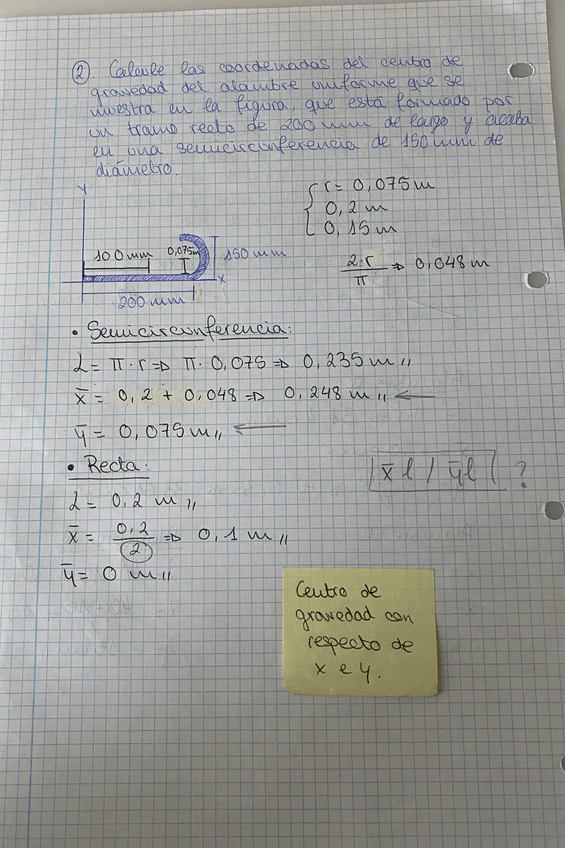 ②. Calcule las coordenadas del centro de
gravedad del alambre uniforme que se
muestra en la figura, que está formado por
un tramo recto de 200 mm de largo y acaba
en una semicirconferencia de 150 mm de
diámetro.
Y
r = 0,075 m
0,2 m
0,15 m
100 mm
0,075m
150 mm
X
200 mm
2·r/π => 0,048 m
• Semicirconferencia:
L = π · r => π · 0,075 => 0,235 m //
x̄ = 0,2 + 0,048 => 0,248 m // ←
ȳ = 0,075 m // ←
• Recta:
x̄ l / ȳ l ?
L = 0,2 m //
x̄ = 0,2/2 => 0,1 m //
ȳ = 0 m //
Centro de
gravedad con
respecto de
x e y.